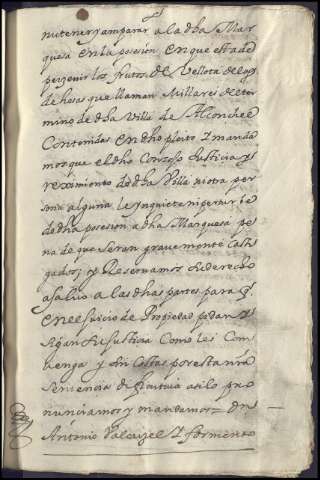 nutener y amparar a la dha Mar
quesa en la posesion, en que esta de
perzeuir los frutos de Vellota de los
de hesas que llaman Millares del ter
mino de dha Villa de Alconchel
Contenidas en dho pleito I manda
mos que el dho Conzejo Justicia y
reximiento de dha Villa ni otra per
sona alguna le ynquiete ni perturbe
de dha posesion a dha Marquesa pe
na de que seran gravemente casti
gados; y Reservamos su derecho
a salvo a las dhas partes para q
en el Juicio de Propiedad pidan y
sigan su justicia Como les Con
benga y sin Costas por esta nra
Sentencia difinitiua asi lo pro
nunciamos y mandamos = Dn
Antonio Valcarzel I formento